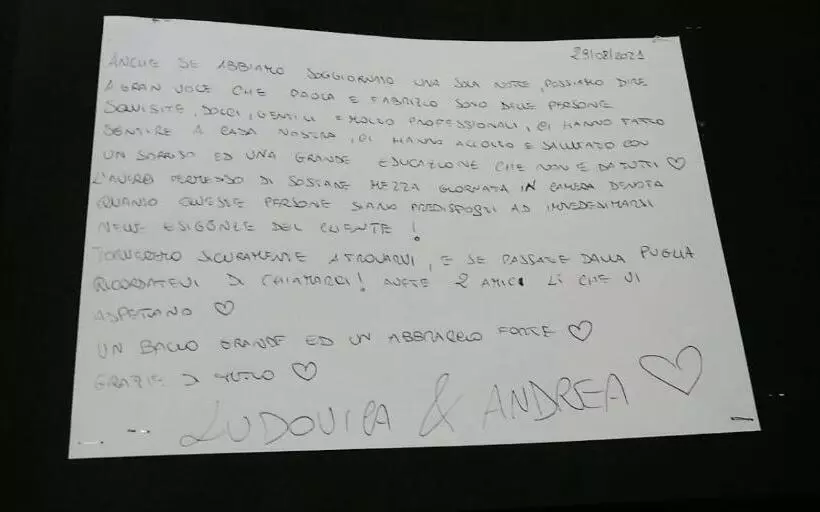 29/08/2021
ANCHE SE ABBIAMO SOGGIORNATO UNA SOLA NOTTE, POSSIAMO DIRE
A GRAN VOCE CHE PAOLA E FABRIZIO SONO DELLE PERSONE
SQUISITE, DOLCI, GENTILI E MOLTO PROFESSIONALI, CI HANNO FATTO
SENTIRE A CASA NOSTRA, CI HANNO ACCOLTO E SALUTATO CON
UN SORRISO ED UNA GRANDE EDUCAZIONE CHE NON È DA TUTTI ♡
L'AVERCI PERMESSO DI SOSTARE MEZZA GIORNATA IN CAMERA DENOTA
QUANTO QUESTE PERSONE SIANO PREDISPOSTI AD IMMEDESIMARSI
NELLE ESIGENZE DEL CLIENTE!
TORNEREMO SICURAMENTE A TROVARVI, E SE PASSATE DALLA PUGLIA
RICORDATEVI DI CHIAMARCI! AVETE 2 AMICI LÌ CHE VI
ASPETTANO ♡
UN BACIO GRANDE ED UN ABBRACCIO FORTE ♡
GRAZIE DI TUTTO ♡
LUDOVICA & ANDREA ♡